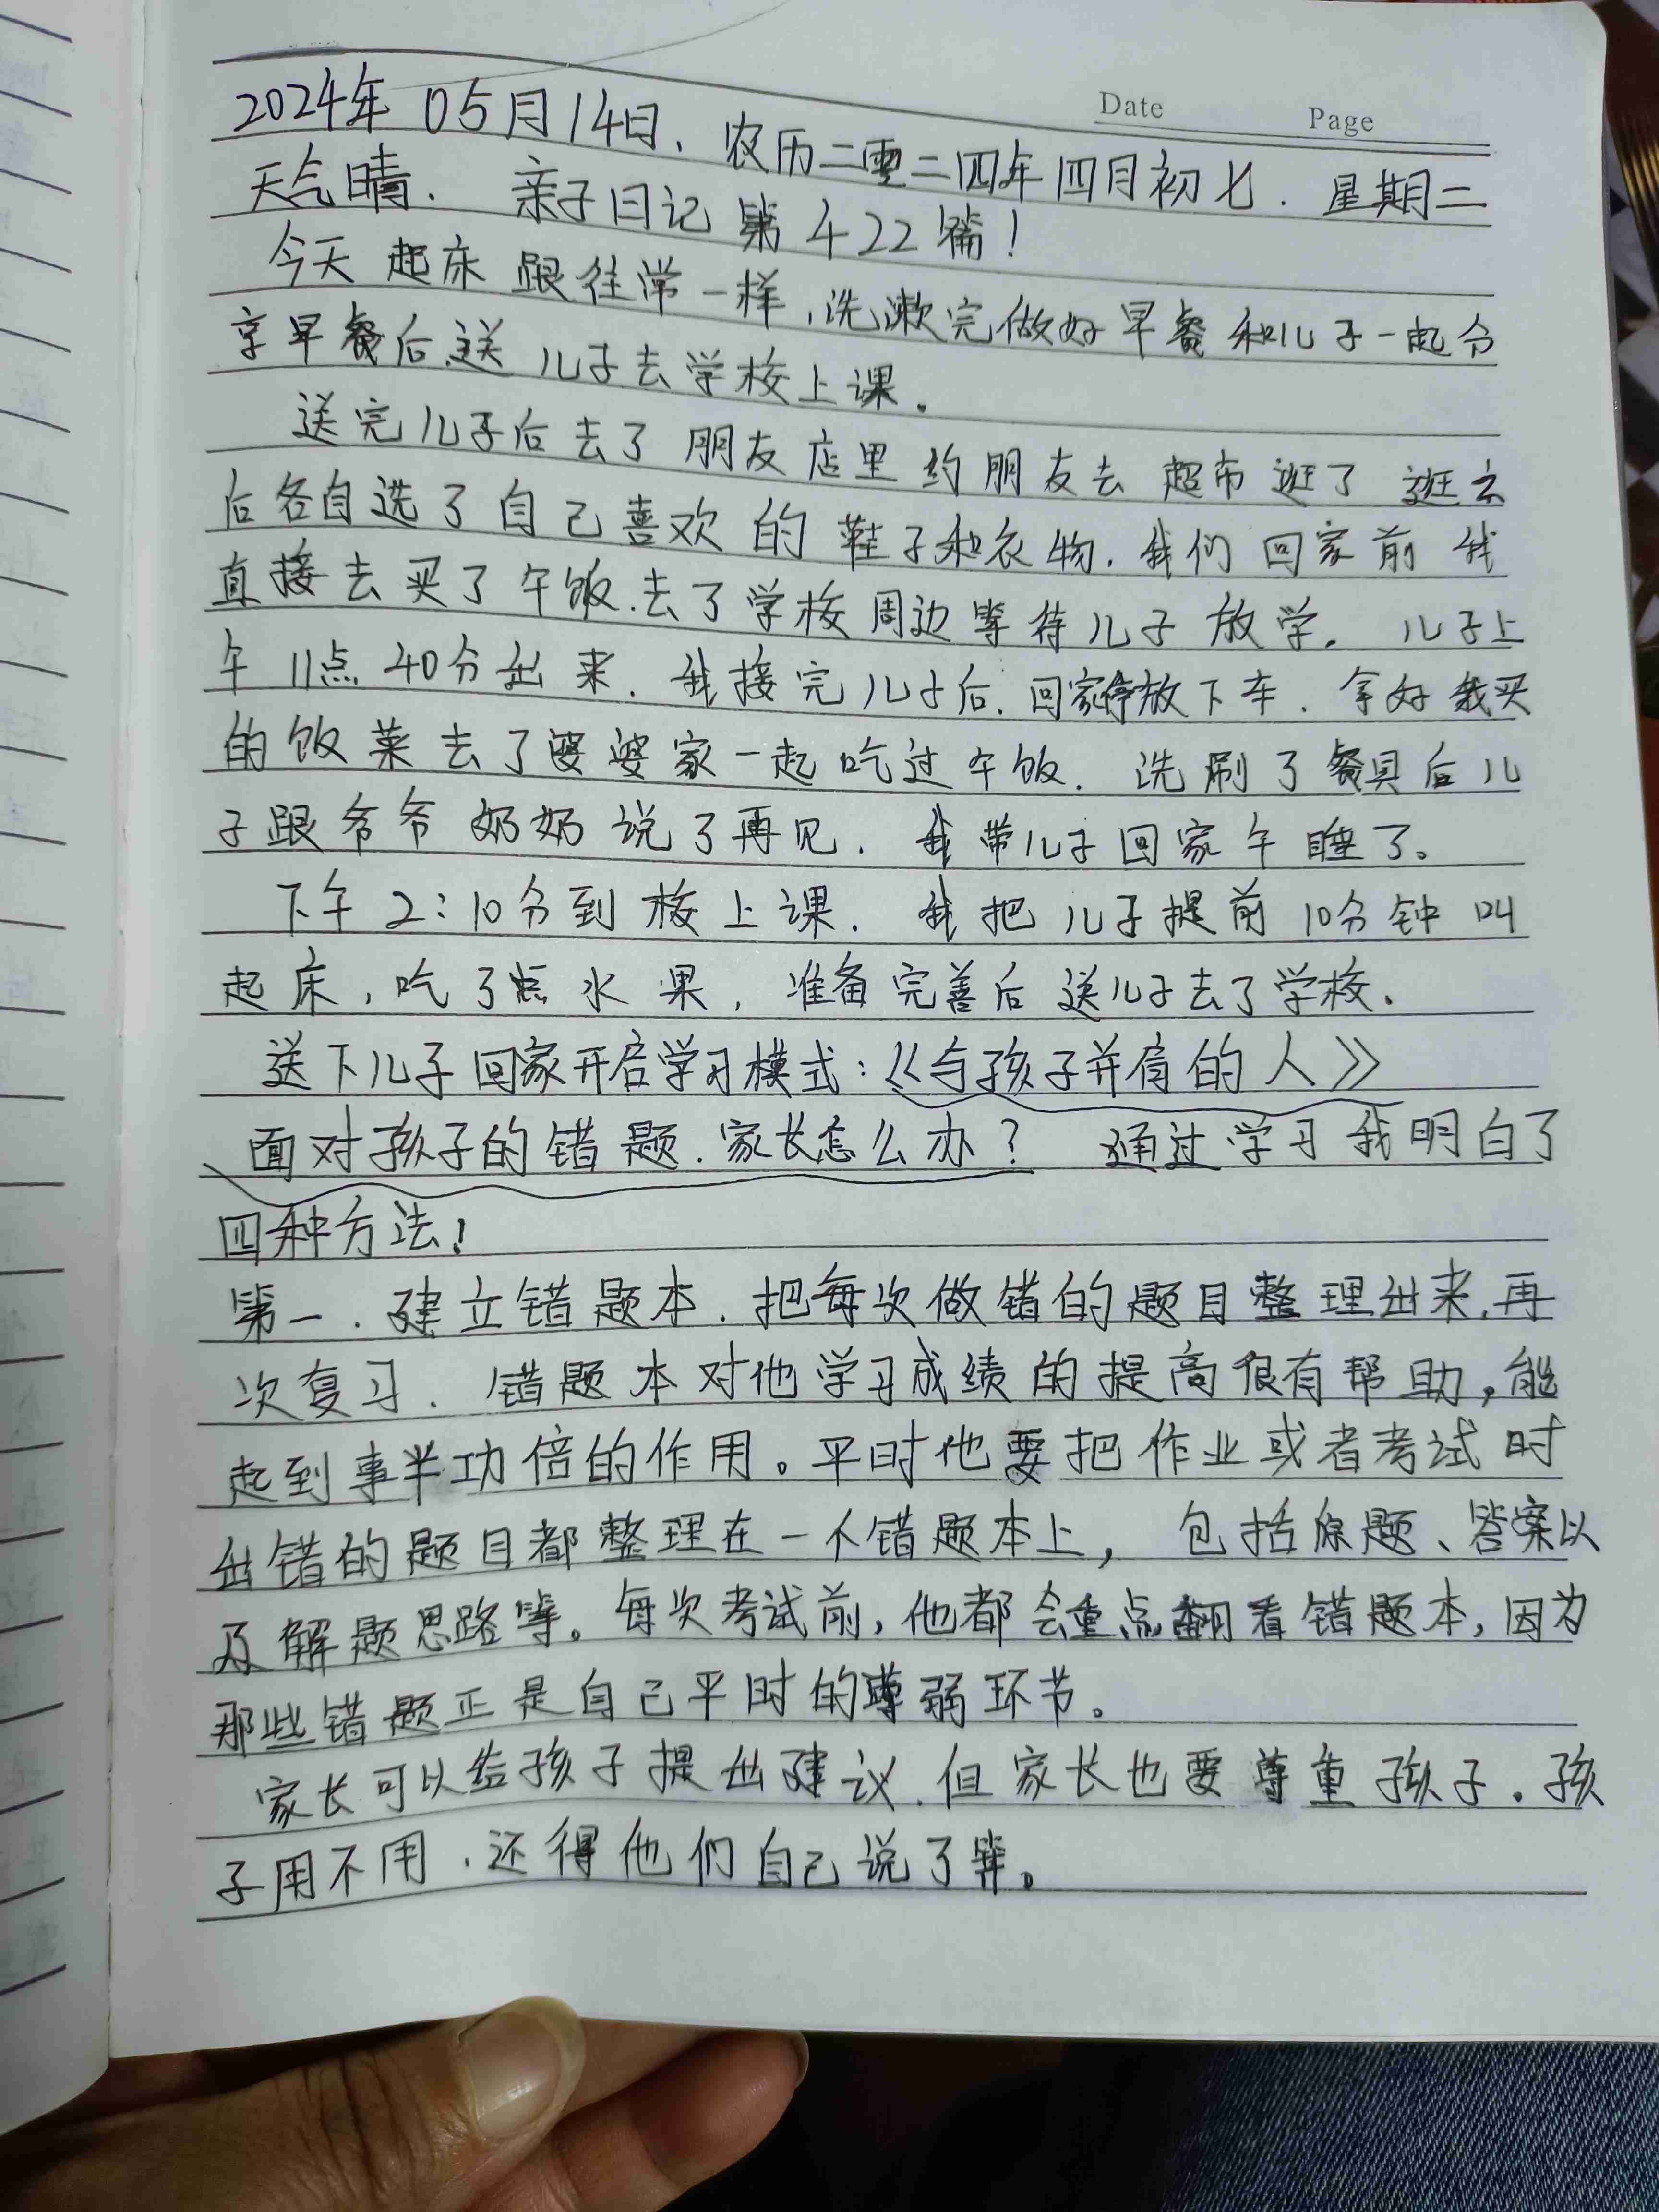 Date Page
2024年05月14日.农历二零二四年四月初七.星期二
天气晴.亲子日记第422篇!
今天起床跟往常一样,洗漱完做好早餐和儿子一起分
享早餐后送儿子去学校上课.
送完儿子后去了朋友店里约朋友去超市逛了逛去
后各自选了自己喜欢的鞋子和衣物.我们回家前我
直接去买了午饭.去了学校周边等待儿子放学.儿子上
午11点40分出来.我接完儿子后.回家停放下车.拿好我买
的饭菜去了婆婆家一起吃过午饭.洗刷了餐具后儿
子跟爷爷奶奶说了再见.我带儿子回家午睡了。
下午2:10分到校上课.我把儿子提前10分钟叫
起床,吃了点水果,准备完善后送儿子去了学校.
送下儿子回家开启学习模式:《与孩子并肩的人》
面对孩子的错题.家长怎么办?通过学习我明白了
四种方法!
第一.建立错题本.把每次做错的题目整理出来,再
次复习.错题本对他学习成绩的提高很有帮助,能
起到事半功倍的作用。平时他要把作业或者考试时
出错的题目都整理在一个错题本上,包括原题、答案以
及解题思路等。每次考试前,他都会重点翻看错题本,因为
那些错题正是自己平时的薄弱环节。
家长可以给孩子提出建议.但家长也要尊重孩子.孩
子用不用.还得他们自己说了算。